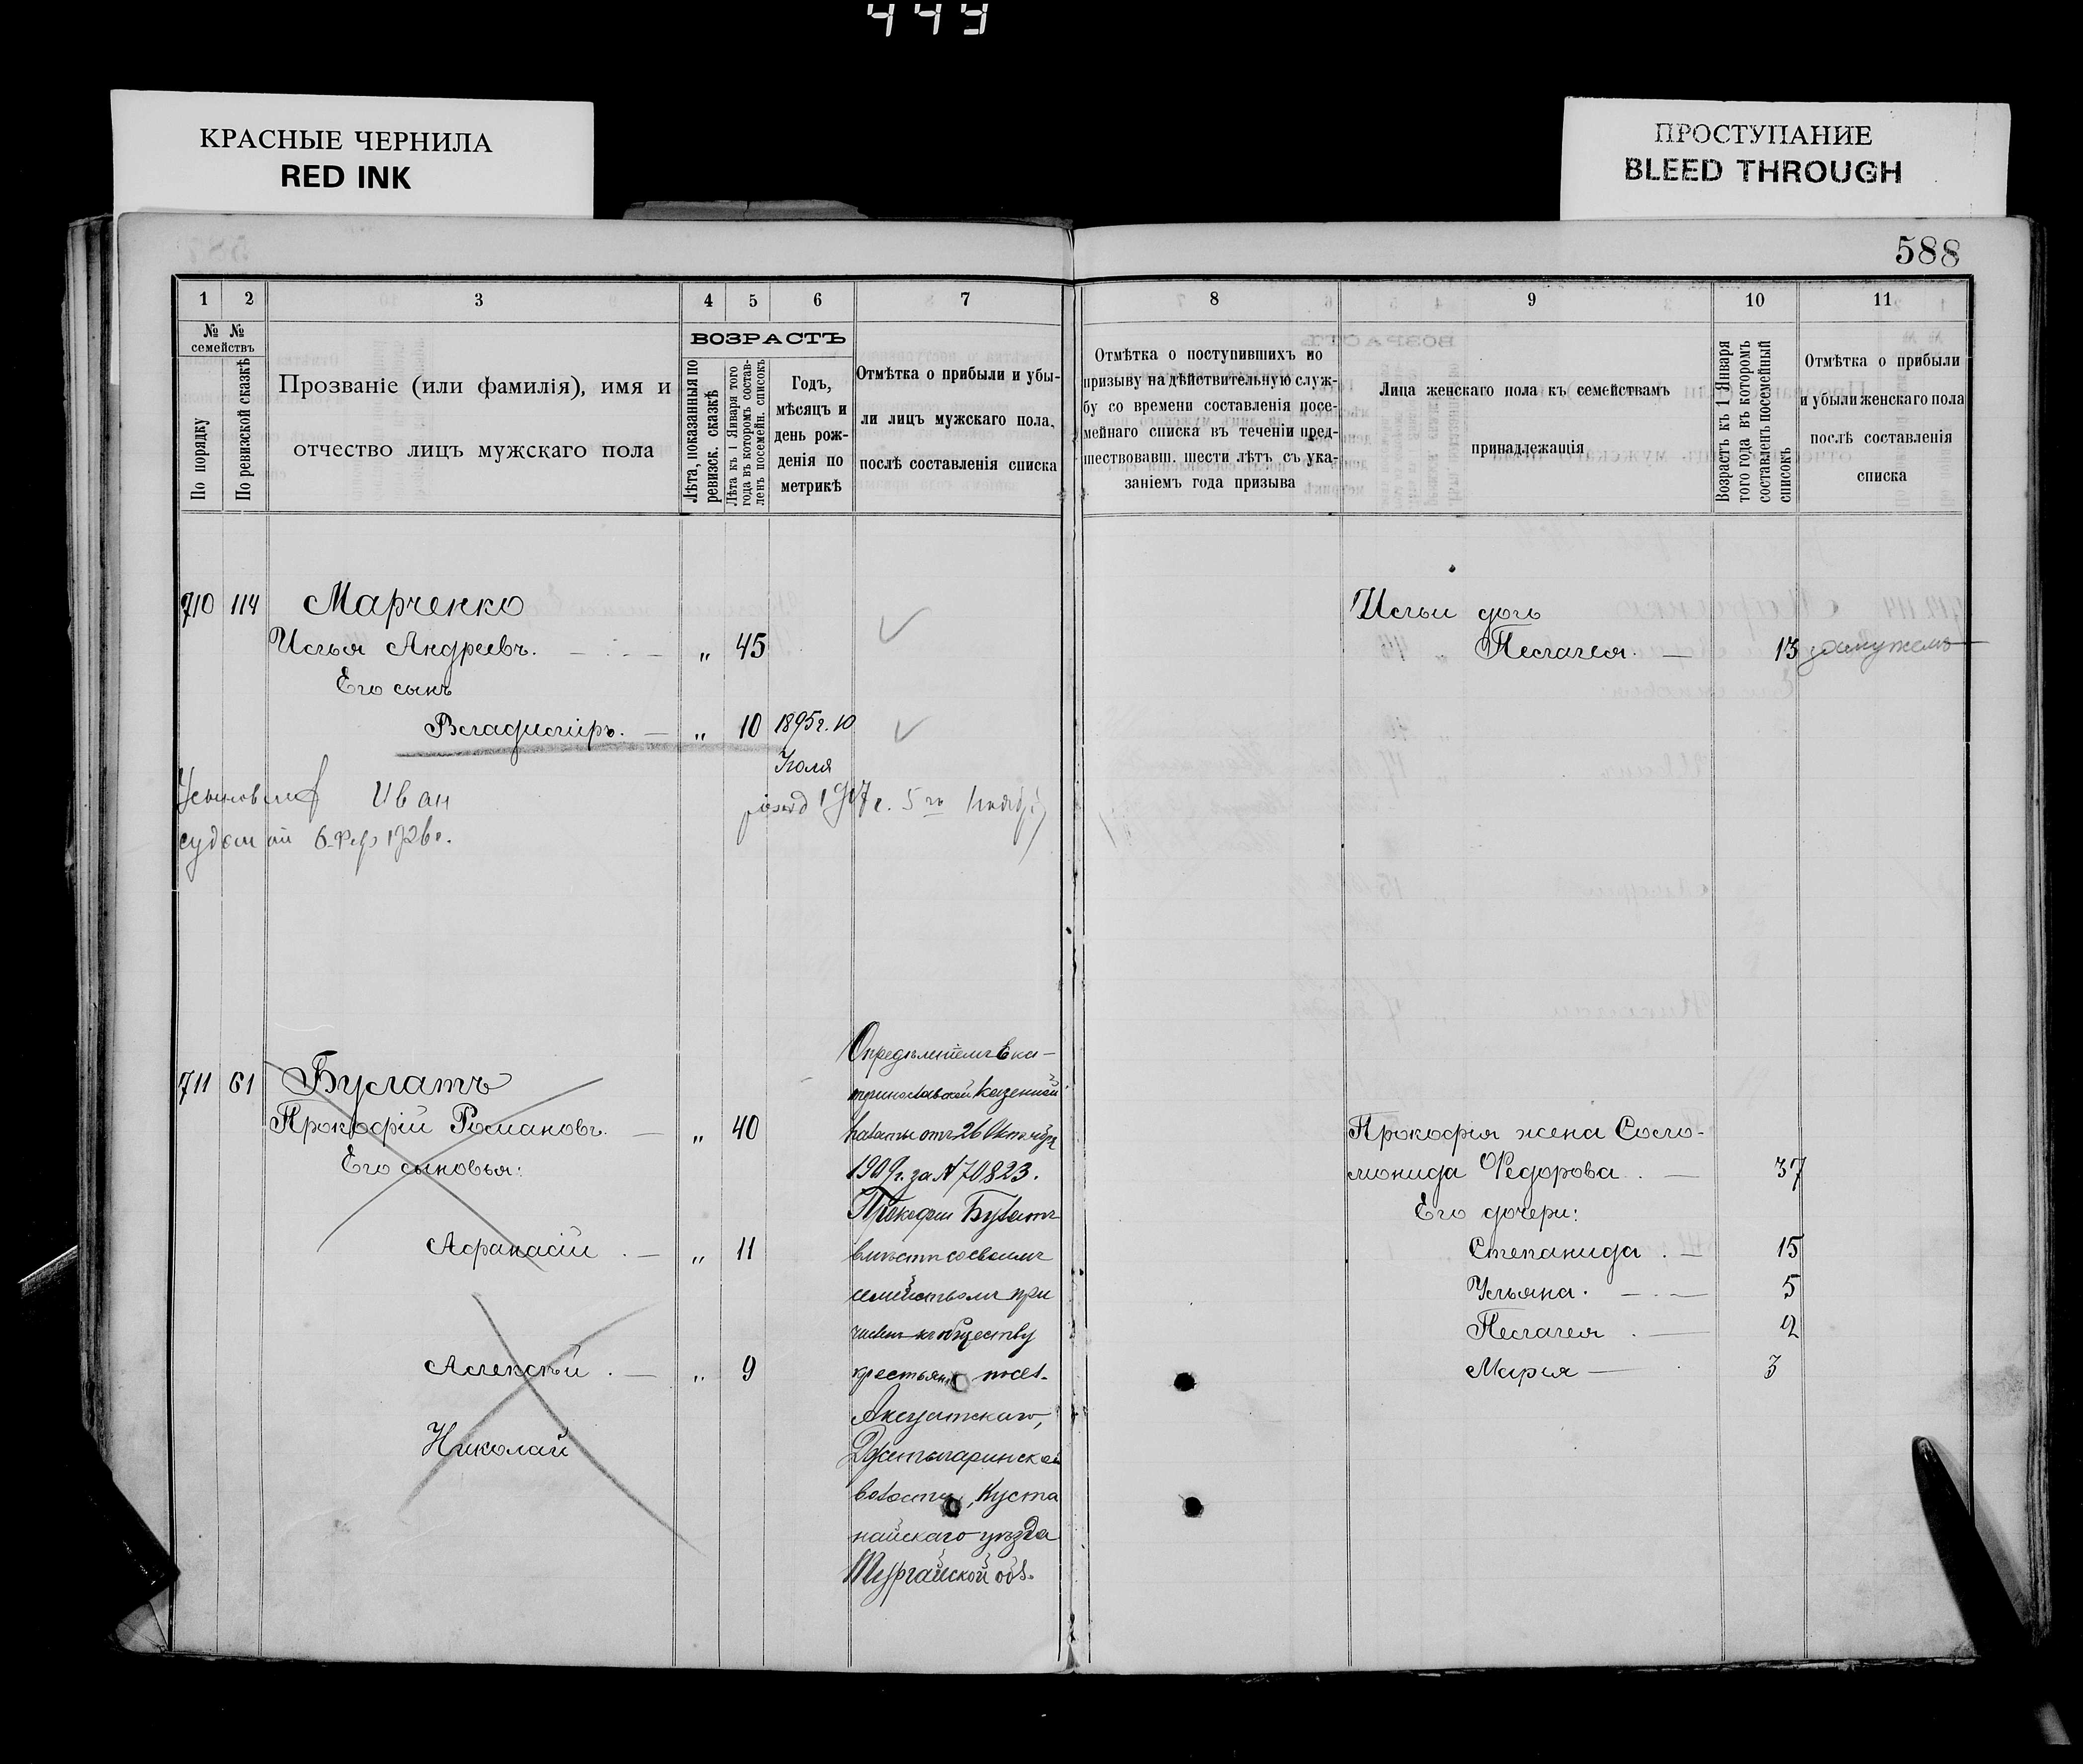 449
КРАСНЫЕ ЧЕРНИЛА
RED INK
ПРОСТУПАНИЕ
BLEED THROUGH
588
1 2 3 4 5 6 7
№ № семействъ
По порядку
По ревизской сказкѣ
Прозваніе (или фамилія), имя и
отчество лицъ мужскаго пола
ВОЗРАСТЪ
Лѣта, показанныя по
ревизск. сказкѣ
Лѣта къ 1 Января того
года въ которомъ состав-
ленъ посемейн. списокъ
Годъ,
мѣсяцъ и
день рож-
денія по
метрикѣ
Отмѣтка о прибыли и убы-
ли лицъ мужскаго пола,
послѣ составленія списка
8 9 10 11
Отмѣтка о поступившихъ по
призыву на дѣйствительную служ-
бу со времени составленія посе-
мейнаго списка въ теченіи пред-
шествовавш. шести лѣтъ съ ука-
заніемъ года призыва
Лица женскаго пола къ семействамъ
принадлежащія
Возрастъ къ 1 Января
того года въ которомъ
составленъ посемейный
списокъ
Отмѣтка о прибыли
и убыли женскаго пола
послѣ составленія
списка
710 114 Марченко
Илья Андреевъ. — „ 45
Его сынъ
Владиміръ. — „ 10 1895г. 10
Юоля
Усыновлен Иван 1917 г. 5го
судом 6 Фев 1926 г.
Ильи дочь
Пелагея. — 13 замужемъ
711 61 Булатъ
Прокофій Романовъ. — „ 40
Его сыновья:
Афанасій . — „ 11
Алексѣй . — „ 9
Николай
Опредѣленіемъ Ека-
теринославской Казенной
палаты отъ 26 Октября
1909г. за № 70823.
Прокофій Булатъ
вмѣстѣ со своимъ
семействомъ при
числен къ обществу
крестьянъ посел.
Аксуатскаго,
Джетыгаринской
волости, Куста
найскаго уѣзда
Тургайской обл.
Прокофія жена Соло-
монида Федорова . — 37
Его дочери:
Степанида . — 15
Ульяна . — 5
Пелагея . — 2
Марія — 3